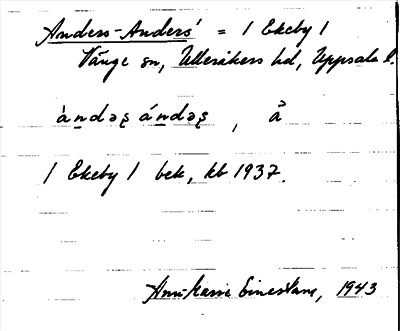 Anders-Anders' = / Ekeby /
Vänge sn, Ulleråkers hd, Uppsala l.
àndəʂ ándəʂ , å
/ Ekeby / bek, kb 1937.
Ann-Karin Einestam, 1943